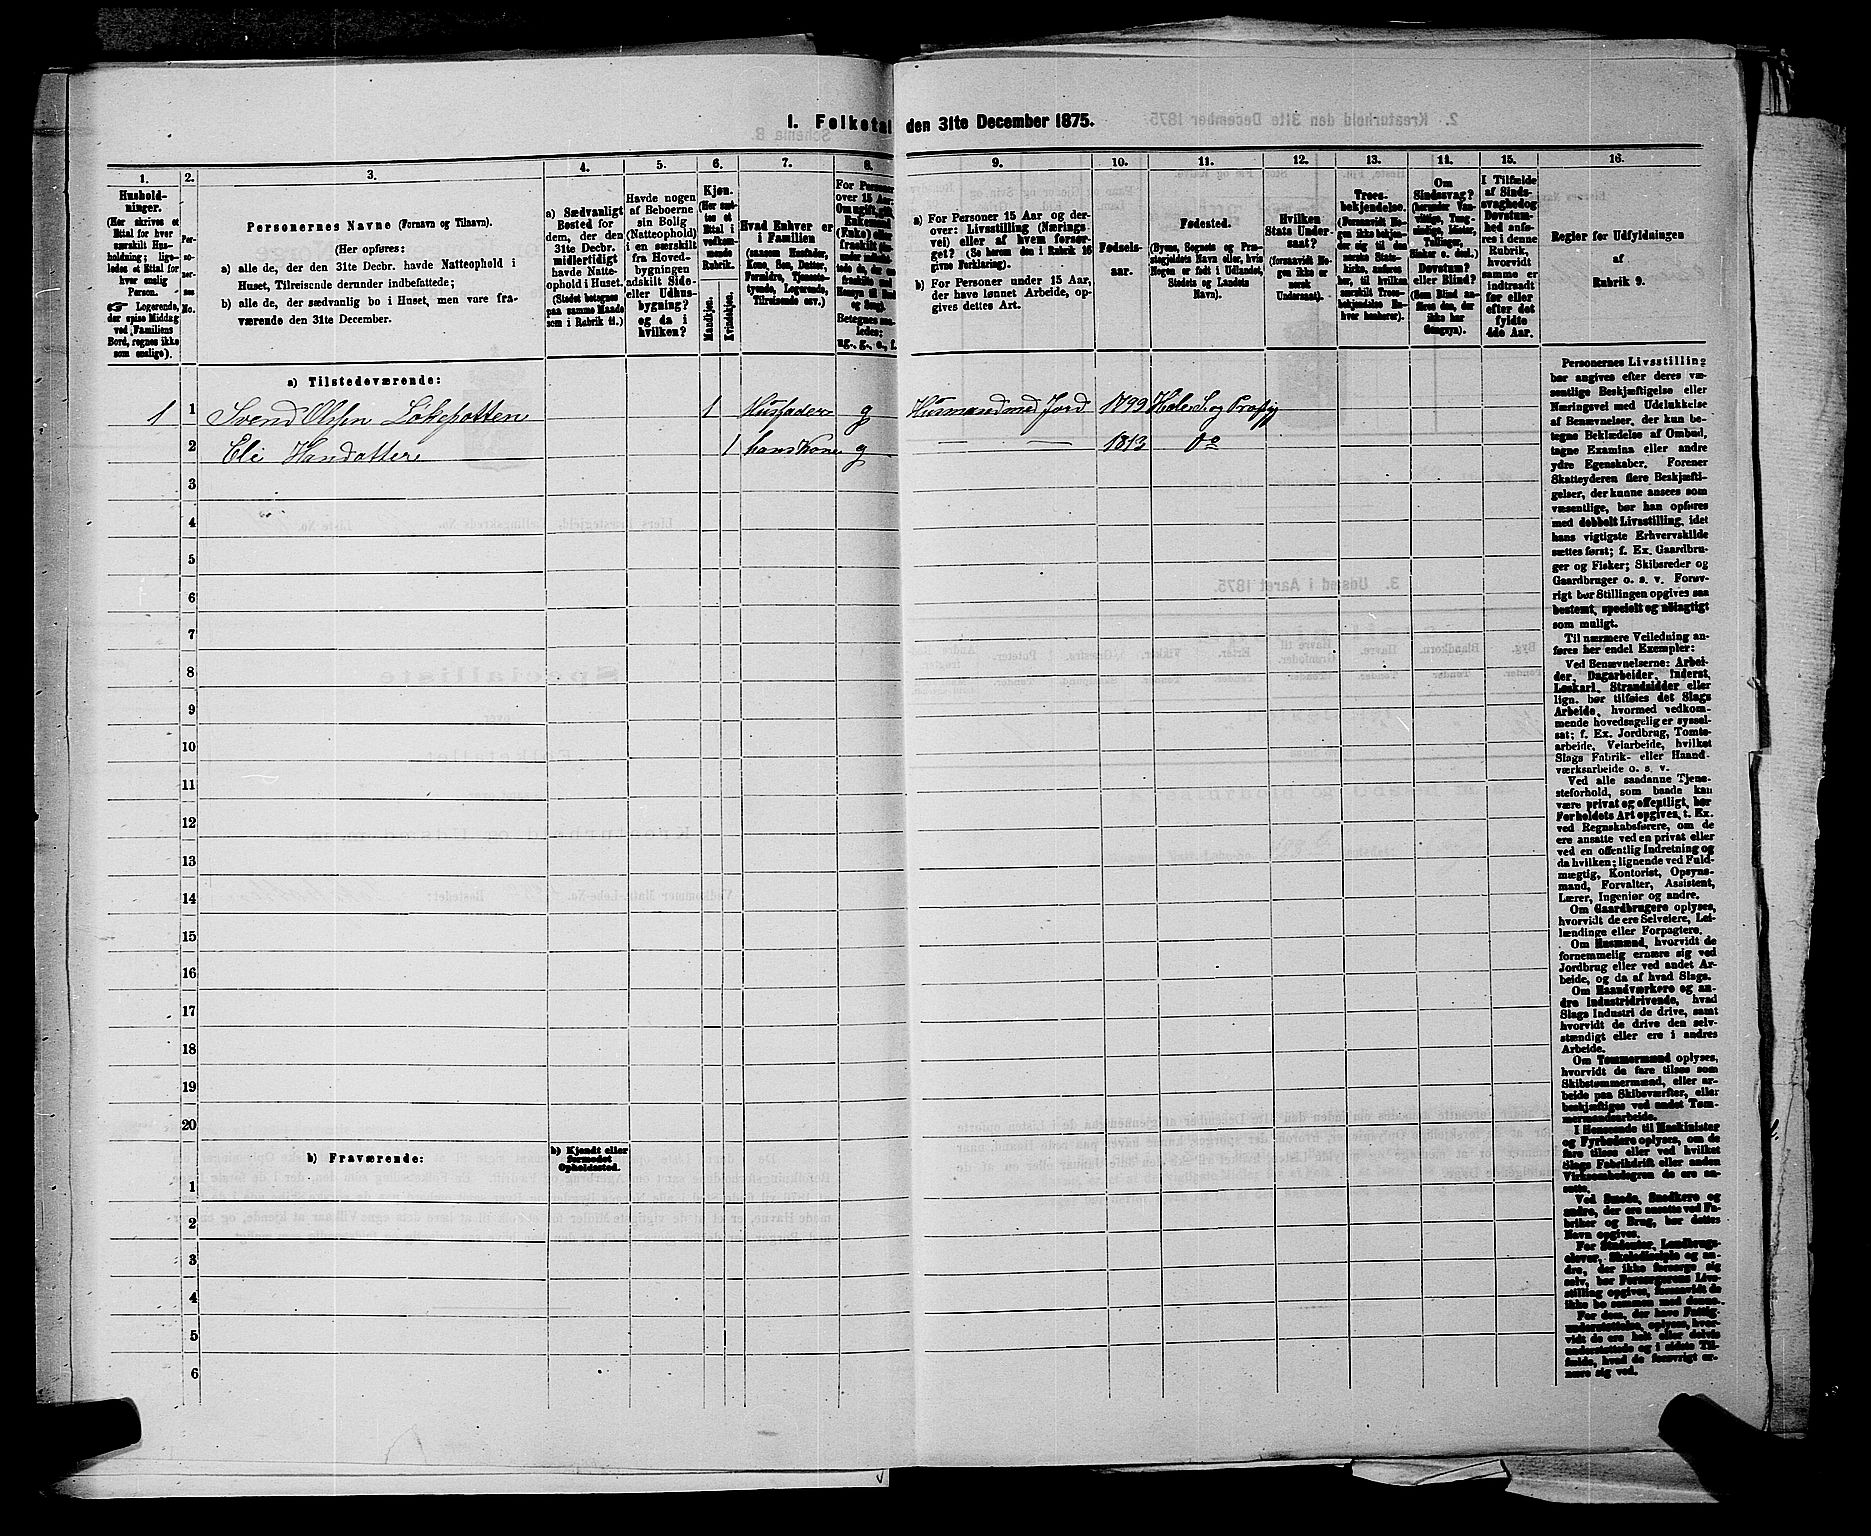 I. Folketal den 31te December 1875.
1.
Hushold-
ninger.
(Her skrives et
Ettal for hver
særskilt Hus-
holdning; lige-
ledes et Ettal for
hver enslig
Person.
☞ Logerende,
der spise Middag
ved Familiens
Bord, regnes ikke
som enslige).
2.
Per-
so-
ner-
nes
No.
3.
Personernes Navne (Fornavn og Tilnavn).
(Her opføres:
a) alle de, der den 31te Decbr. havde Natteophold i
Huset, Tilreisende derunder indbefattede;
b) alle de, der sædvanlig bo i Huset, men vare fra-
værende den 31te December.
4.
a) Sædvanligt
Bosted for
dem, der den
31te Decbr.
midlertidigt
havde Natte-
ophold i Huset.
(Stedet betegnes
paa samme Maade
som i Rubrik 11.)
5.
Havde nogen
af Beboerne
sin Bolig
(Natteophold)
i en særskilt
fra Hoved-
bygningen
adskilt Side-
eller Udhus-
bygning?
og da i
hvilken?
6.
Kjøn.
(Her sæt-
tes et
Ettal i
vedkom-
mende
Rubrik.
Mandkjøn.
Kvindekjøn.
7.
Hvad Enhver er
i Familien
(saasom Husfader,
Kone, Søn, Datter,
Forældre, Tjeneste-
tyende, Logerende,
Tilreisende osv.)
8.
For Personer
over 15 Aar:
Om ugift, gift,
Enkemand
(Enke) eller
fraskilt
Betegnes saa-
ledes:
ug., g., e., f.
9.
a) For Personer 15 Aar og der-
over: Livsstilling (Nærings-
vei) eller af hvem forsør-
get? (Se herom den i Rubrik 16
givne Forklaring).
b) For Personer under 15 Aar,
der have lønnet Arbeide, op-
gives dettes Art.
10.
Fødsels-
aar.
11.
Fødested.
(Byens, Sognets og Præ-
stegjeldets Navn eller, hvis
Nogen er født i Udlandet,
Stedets og Landets
Navn).
12.
Hvilken
Stats Under-
saat?
(forsaavidt No-
gen ikke er
norsk
Undersaat).
13.
Troes-
bekjendelse.
(Forsaavidt No-
gen ikke bekjen-
der sig til den
norske Stats-
kirke, anføres
her, til hvilken
særskilt Troes-
bekjendelse En-
hver henhører).
14.
Om
Sindssvag?
(herunder Van-
vittige, Tung-
sindige, Idioter,
Tullinger,
Sinker o. desl.)
Døvstum?
eller Blind?
(Som Blind an-
føres den, der
ikke har
Gangsyn).
15.
I Tilfælde
af Sinds-
svaghed og
Døvstum-
hed anfø-
res i denne
Rubrik,
hvorvidt
samme er
indtraadt
før eller
efter det
fyldte
4de Aar.
16.
Regler for Udfyldningen
af
Rubrik 9.
a) Tilstedeværende:
1 1 Svend Olsen Løkepotten 1 Husfader g Husmand med Jord 1799 Hole S. og Præstgj
2 Eli Hansdatter 1 hans Kone g — — 1813 do
3
4
5
6
7
8
9
10
11
12
13
14
15
16
17
18
19
20
b) Fraværende:
b) Kjendt eller
formodet
Opholdssted.
1
2
3
4
5
6
Personernes Livsstilling
bør angives efter deres væ-
sentlige Beskjæftigelse eller
Næringsvei med Udelukkelse
af Benævnelser, der kun be-
tegne Beklædelse af Ombud,
tagne Examina eller andre
ydre Egenskaber. Forener
Skatteyderen flere Beskjæfti-
gelser, der kunne ansees som
væsentlige, bør han opføres
med dobbelt Livsstilling, idet
hans vigtigste Erhvervskilde
sættes først; f. Ex. Gaardbru-
ger og Fisker; Skibsreder og
Gaardbruger o. s. v. Forøv-
rigt bør Stillingen opgives saa
bestemt, specielt og nøiagtigt
som muligt.
Til nærmere Veiledning an-
føres her endel Exempler:
Ved Benævnelserne: Arbei-
der, Dagarbeider, Inderst,
Løskarl, Strandsidder eller
lign. bør tilføies det Slags
Arbeide, hvormed vedkom-
mende hovedsagelig er syssel-
sat; f. Ex. Jordbrug, Tomte-
arbeide, Veiarbeide, hvilket
Slags Fabrik- eller Haand-
værksarbeide o. s. v.
Ved alle saadanne Tjene-
steforhold, som baade kan
være privat og offentligt, bør
Forholdets Art opgives, t. Ex.
ved Regnskabsførere, om de
ere ansatte ved en privat eller
ved en offentlig Indretning og
da hvilken; lignende ved Fuld-
mægtig, Kontorist, Opsyns-
mand, Forvalter, Assistent,
Lærer, Ingeniør og andre.
Om Gaardbrugere oplyses,
hvorvidt de ere Selveiere, Lei-
lændinge eller Forpagtere.
Om Husmænd, hvorvidt de
fornemmelig ernære sig ved
Jordbrug eller ved andet Ar-
beide, og da af hvad Slags.
Om Haandværkere og an-
dre Industridrivende, hvad
Slags Industri de drive, samt
hvorvidt de drive den selv-
stændigt eller ere i andres
Arbeide.
Om Tømmermænd oplyses,
hvorvidt de fare tilsøs som
Skibstømmermænd, eller ar-
beide paa Skibsværfter, eller
beskjæftiges ved andet Tøm-
mermandsarbeide.
I Henseende til Maskinister
og Fyrbødere oplyses, om de
fare tilsøs eller ved hvilket
Slags Fabrikdrift eller anden
Virksomhedsgren de ere an-
satte.
Ved Smede, Snedkere og
andre, der ere ansatte ved Fa-
briker og Brug, bør dettes
Navn opgives.
For Studenter, Landbrugs-
elever, Skoledisciple og an-
dre, der ikke forsørge sig
selv, bør Forsørgerens Livs-
stilling opgives, forsaavidt de
ikke bo sammen med denne.
For dem, der have Fattig-
understøttelse, oplyses, hvor-
vidt de ere helt eller delvis
understøttede og i sidste Til-
fælde, hvad de forøvrigt er-
nære sig ved.